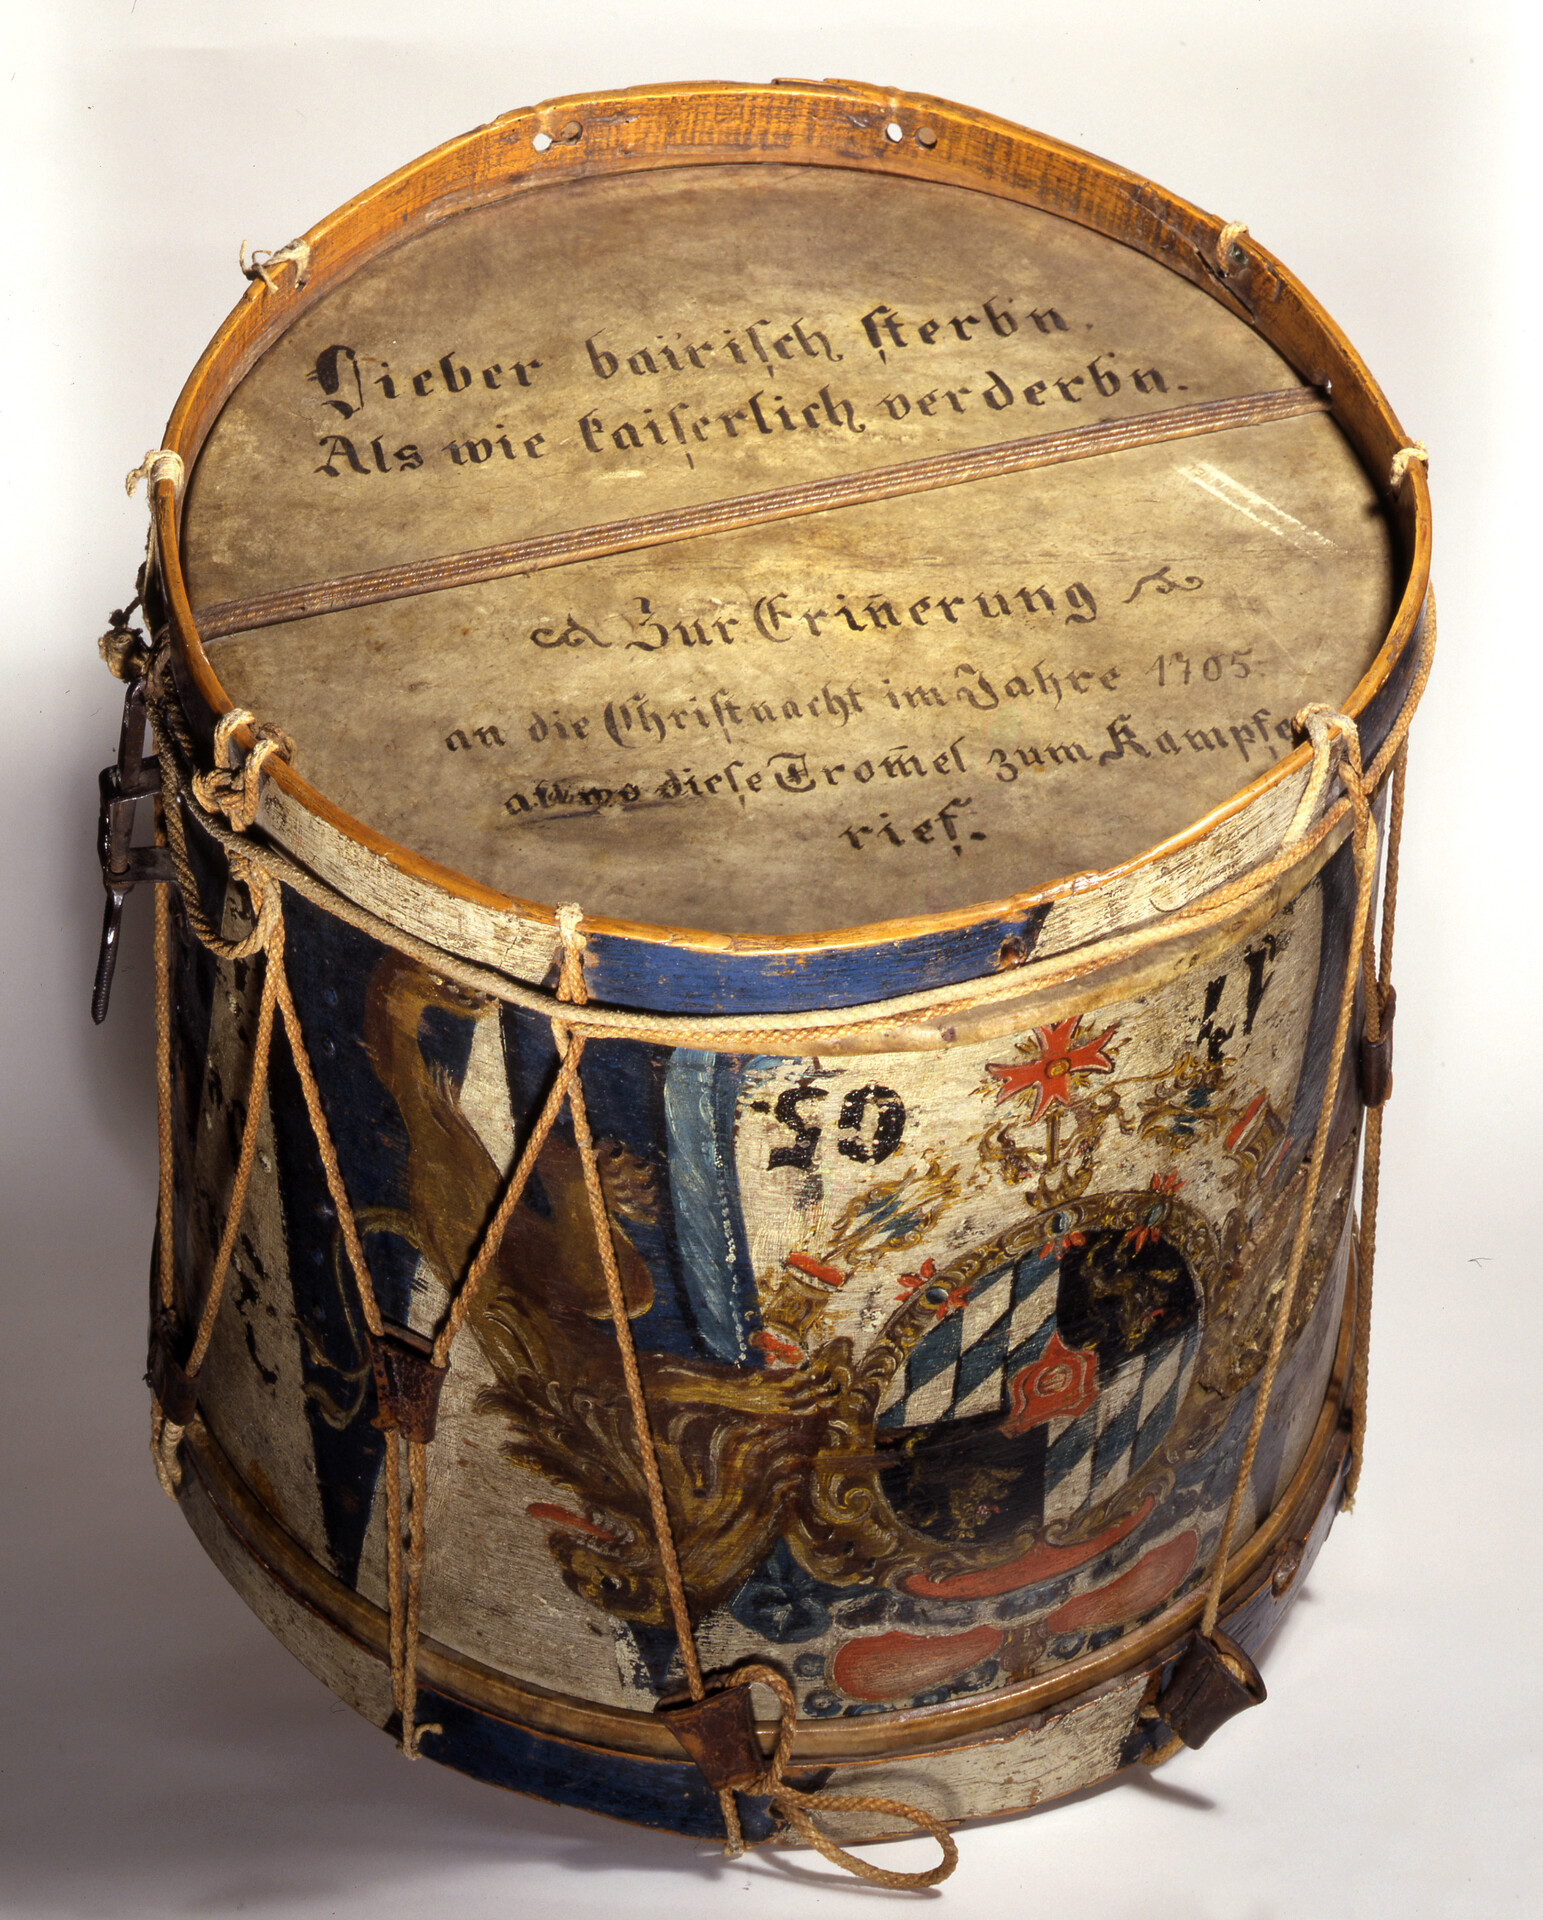 Lieber bairisch sterbn.
Als wie kaiserlich verderbn.
Zur Erin̄erung
an die Christnacht im Jahre 1705.
allwo diese Trom̄el zum Kampfe
rief.
17
05